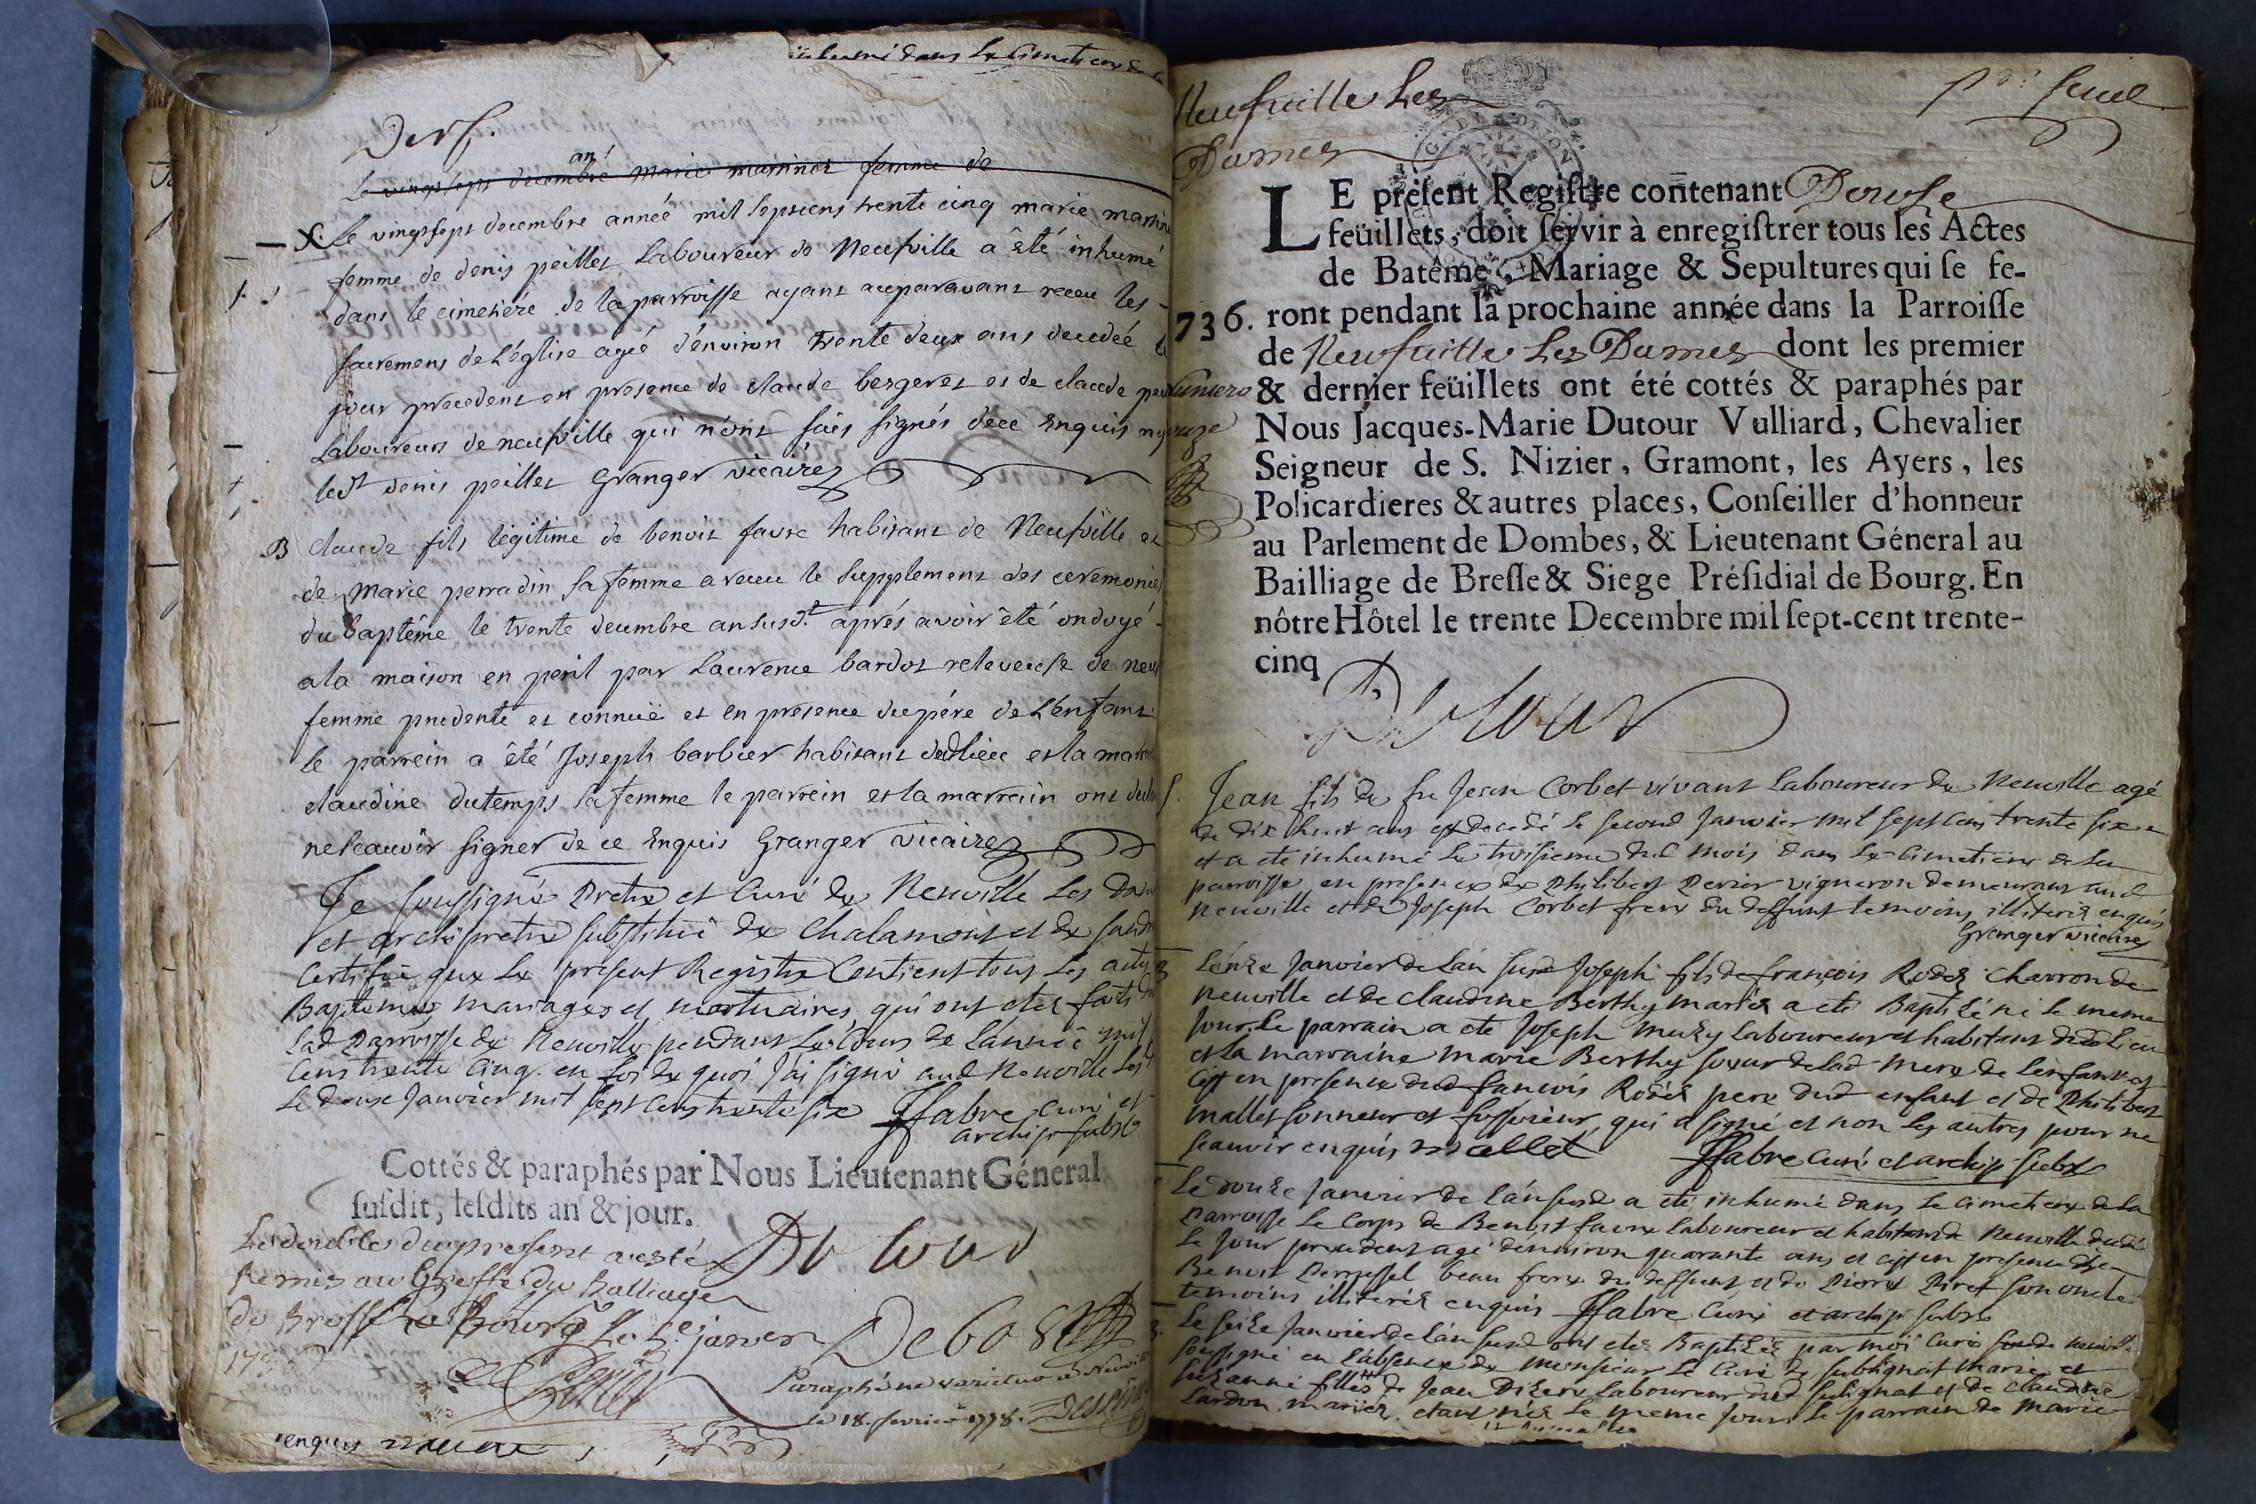 inhumé dans le Cimetiere de la
Le vingt sept decembre marie martinet femme de
an
Le vingt sept decembre année mil sept cens trente cinq marie martin
femme de denis peillet Laboureur de Neufville a été inhumé
dans le cimetiére de la parroisse ayant auparavant receu les
sacremens de L'église agée d'environ trente deux ans decedéé le
jour precedent en presence de claude bergeret et de claude
Laboureurs de neufville qui n'ont sçais signés dece Enquis
denis peillet Granger vicaire
B claude fils légitime de benoit favre habitant de Neufville et
de Marie perradin sa femme a receu le Supplement des ceremonies
du baptéme le trente decembre an susd.t aprés avoir été ondoyé
a la maison en peril par Laurence bardot releveuse de neu
femme prudente et connuë et en presence du pére de L'enfant
le parrein a été Joseph barbier habitant dudlieu et la mar
claudine dutemps sa femme le parrein et la marrain ont
ne scavoir signer de ce Enquis Granger vicaire
Je soussigné Pretre et Curé de Neuville Les
et archipretre substitué de Chalamont et de
Certifie que Le present Registre Contient tous Les actes
Baptemes mariages et mortuaires, qui ont etes faits
Lad Parroisse de Neuville pendant Le Cours de L'année mil
Cens trente Cinq. en foi de quoi J'ai signé aud Neuville Les
Le douse Janvier mil sept cens trente six ffabre Curé et
archip subst
Cottés & paraphés par Nous Lieutenant Géneral
susdit, lesdits an & jour.
Le double du present a esté Dutour
Remis au Greffe du Balliage
de Bresse a Bourg Le janvier
Paraphé ne varietur a Neuville
le 18. fevrier 1778.
enquis
Neufville Les
Dames
feuil
LE présent Registre contenant Douze
feüillets, doit servir à enregistrer tous les Actes
de Batême, Mariage & Sepultures qui se fe-
736. ront pendant la prochaine année dans la Parroisse
de Neufville Les Dames dont les premier
& dernier feüillets ont été cottés & paraphés par
Nous Jacques-Marie Dutour Vulliard, Chevalier
Seigneur de S. Nizier, Gramont, les Ayers, les
Policardieres & autres places, Conseiller d'honneur
au Parlement de Dombes, & Lieutenant Géneral au
Bailliage de Bresse & Siege Présidial de Bourg. En
nôtre Hôtel le trente Decembre mil sept-cent trente-
cinq
Dutour
Jean fils de fu Jean Corbet vivant Laboureur de Neuville agé
de dix huit ans est decedé le second Janvier mil sept cens trente six
et a eté inhumé Le troisieme dud mois dans Le Cimetiere de La
parroisse en presence de Philibert Perrier vigneron demeurant aud
neuville et de Joseph Corbet frere du deffunt temoins illiterés enquis
Granger vicaire
L'onze Janvier de L'an susd Joseph fils de françois Rodet Charron de
Neuville et de Claudine Berthy mariés a eté Baptisé né le meme
Jour. Le parrain a eté Joseph Laboureur et habitant dud Lieu
et La marraine marie Berthy soeur de lad mere de L'enfant et
C'est en presence dud francois Rodet pere dud enfant et de Philibert
mallet sonneur et fossoieur, qui a signé et non Les autres pour ne
scauvoir enquis mallet ffabre Curé et archip subst
Le douze Janvier de L'an susd a eté inhumé dans Le Cimetiere de La
Parroisse Le Corps de Benoist favre Laboureur et habitant de Neuville decedé
Le Jour precedent agé d'environ quarante ans et c'est en presence de
Benoit beau frere du deffunt et de Pierre Piret son oncle
temoins illiterés enquis ffabre Curé et archip subst
Le seize Janvier de L'an susd ont etes Baptisées par moi Curé sousd Neuville
soussigné en L'absence de Monsieur Le Curé de Sulignat marie et
suzanne filles de Jean Laboureur dud Sulignat et de Claudine
Lardon mariés etant nées Le meme Jour. Le parrain de marie